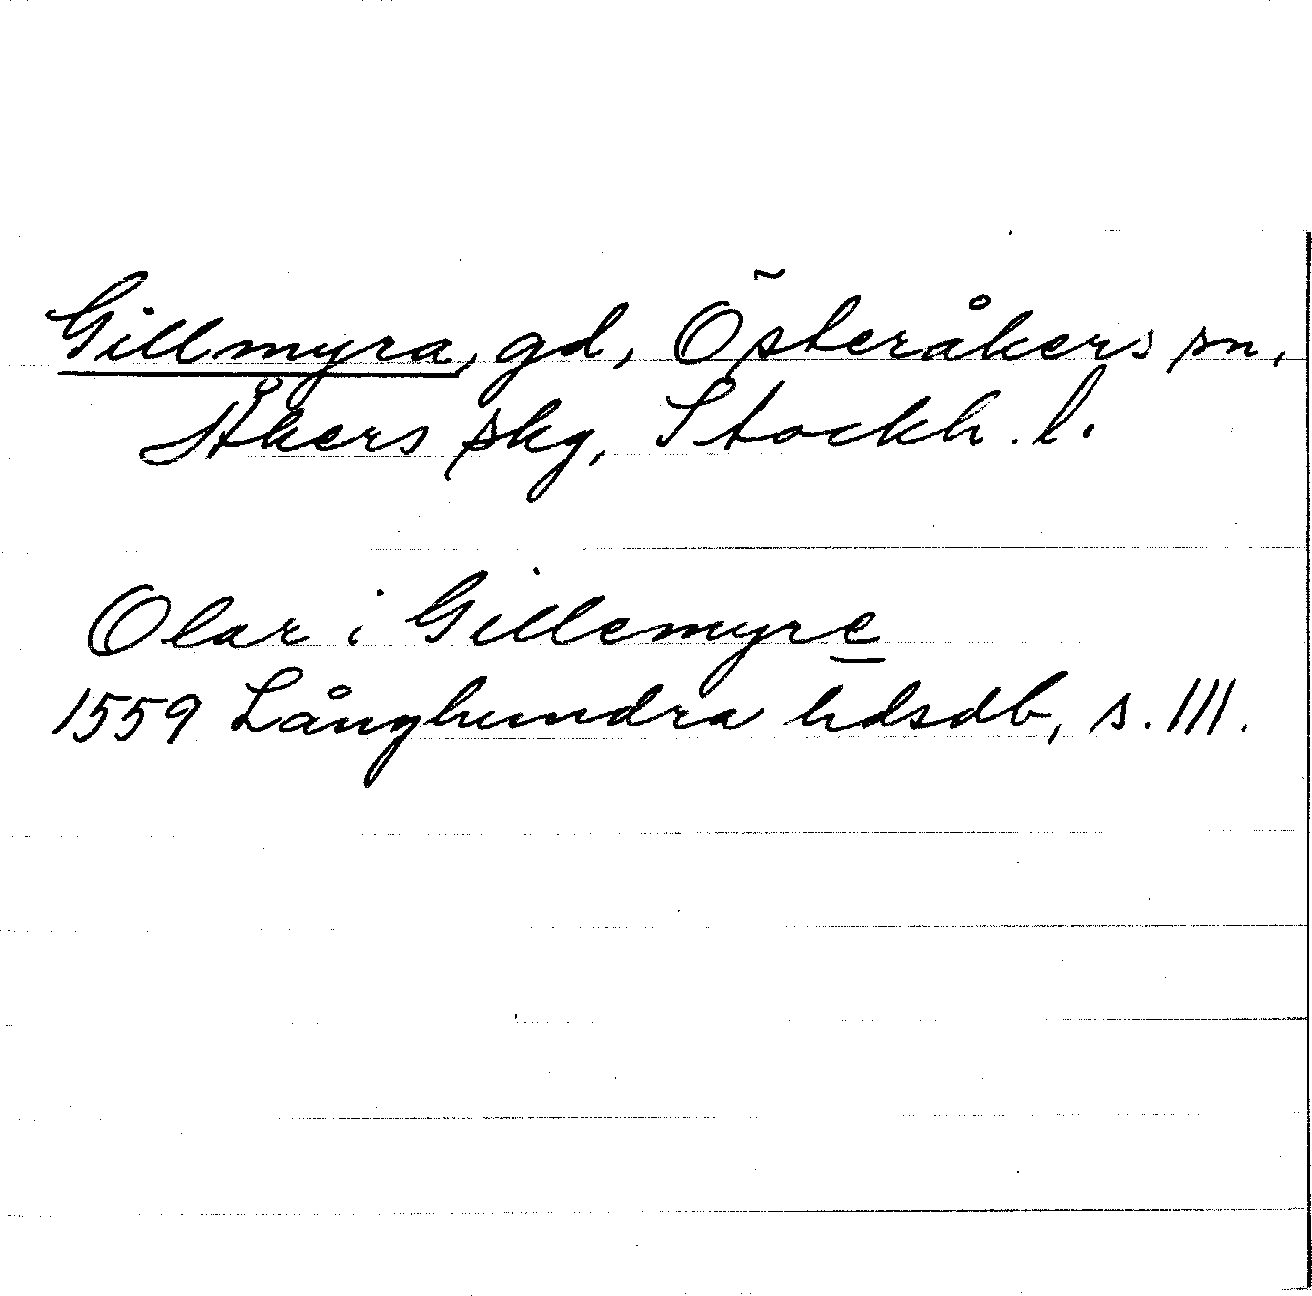 Gillmyra, gd, Österåkers sn,
Åkers skg, Stockh. l.
Olar i Gillemyre
1559 Långhundra hdsdb, s. 111.